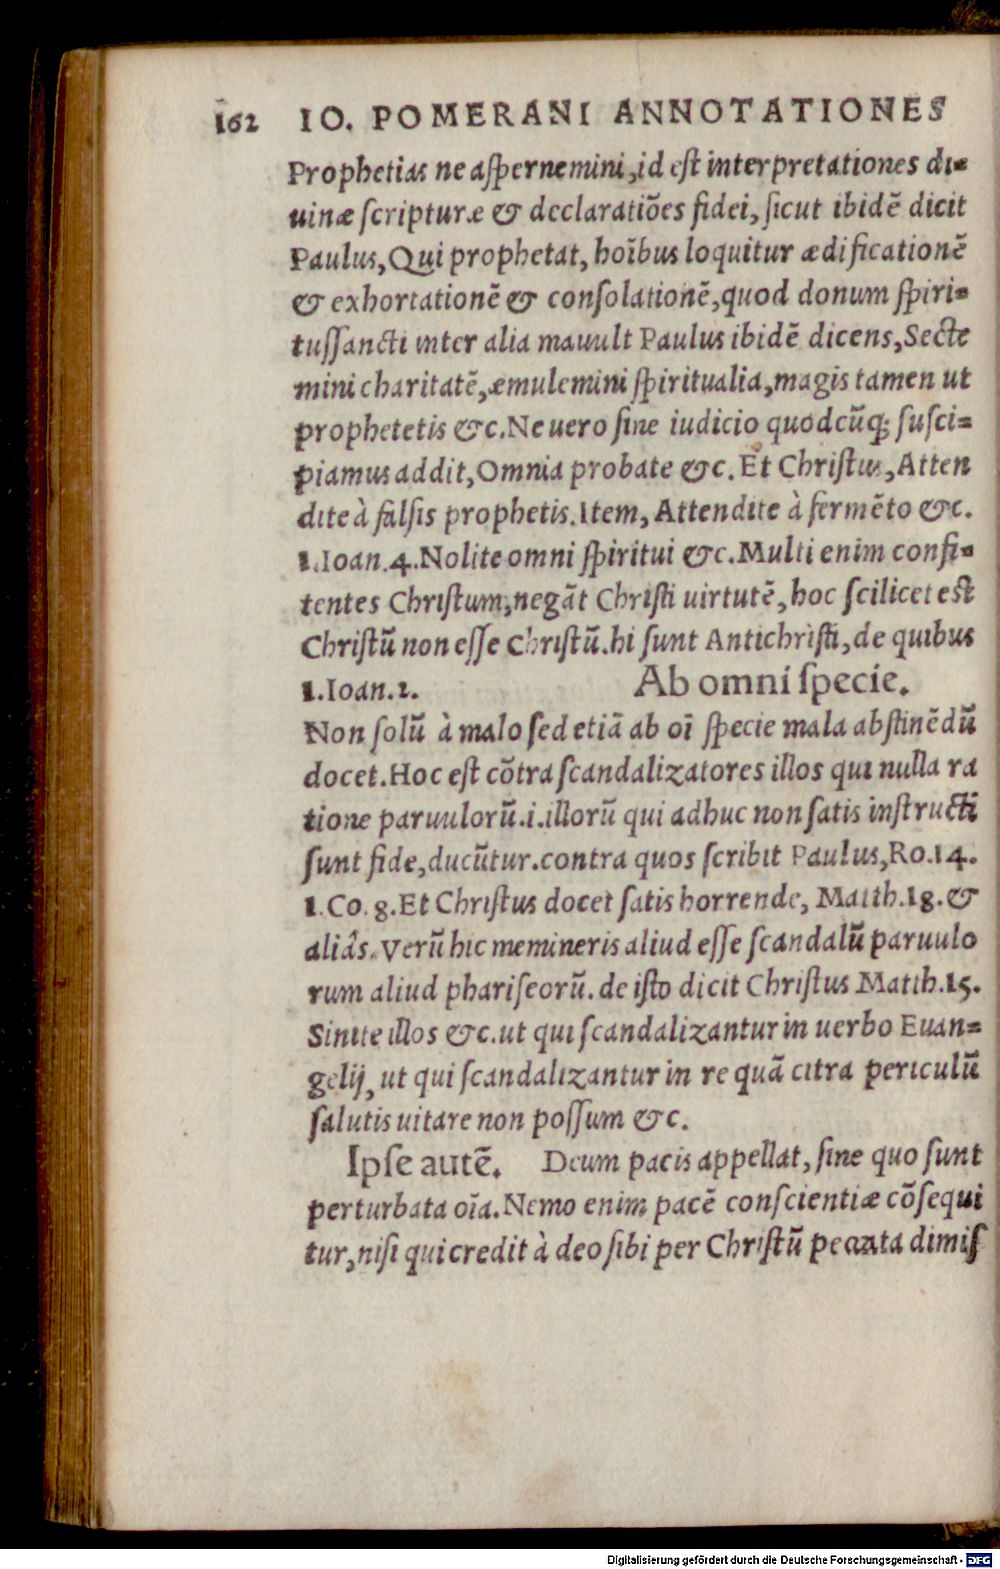 162 IO. POMERANI ANNOTATIONES
Prophetias ne aſpernemini, id eſt interpretationes di⸗
uinæ ſcripturæ & declaratiões fidei, ſicut ibidē dicit
Paulus, Qui prophetat, hoībus loquitur ædificationē
& exhortationē & conſolationē, quod donum ſpiri⸗
tuſſancti inter alia mauult Paulus ibidē dicens, Secte
mini charitatē, æmulemini ſpiritualia, magis tamen ut
prophetetis &c. Ne uero ſine iudicio quodcūq; ſuſci⸗
piamus addit, Omnia probate &c. Et Chriſtus, Atten
dite à falſis prophetis. Item, Attendite à fermēto &c.
1. Ioan. 4. Nolite omni ſpiritui &c. Multi enim confi⸗
tentes Chriſtum, negāt Chriſti uirtutē, hoc ſcilicet eſt
Chriſtū non eſſe Chriſtū. hi ſunt Antichriſti, de quibus
1. Ioan. 2. Ab omni ſpecie.
Non ſolū à malo ſed etiā ab oī ſpecie mala abſtinēdū
docet. Hoc eſt cōtra ſcandalizatores illos qui nulla ra
tione paruulorū .i. illorū qui adhuc non ſatis inſtructi
ſunt fide, ducūtur. contra quos ſcribit Paulus, Ro. 14.
1. Co. 8. Et Chriſtus docet ſatis horrende, Matth. 18. &
aliâs. Verū hic memineris aliud eſſe ſcandalū paruulo
rum aliud phariſeorū. de iſto dicit Chriſtus Matth. 15.
Sinite illos &c. ut qui ſcandalizantur in uerbo Euan⸗
gelij, ut qui ſcandalizantur in re quā citra periculū
ſalutis uitare non poſſum &c.
Ipſe autē. Deum pacis appellat, ſine quo ſunt
perturbata oīa. Nemo enim pacē conſcientiæ cōſequi
tur, niſi qui credit à deo ſibi per Chriſtū peccata dimiſ
Digitalisierung gefördert durch die Deutsche Forschungsgemeinschaft - DFG